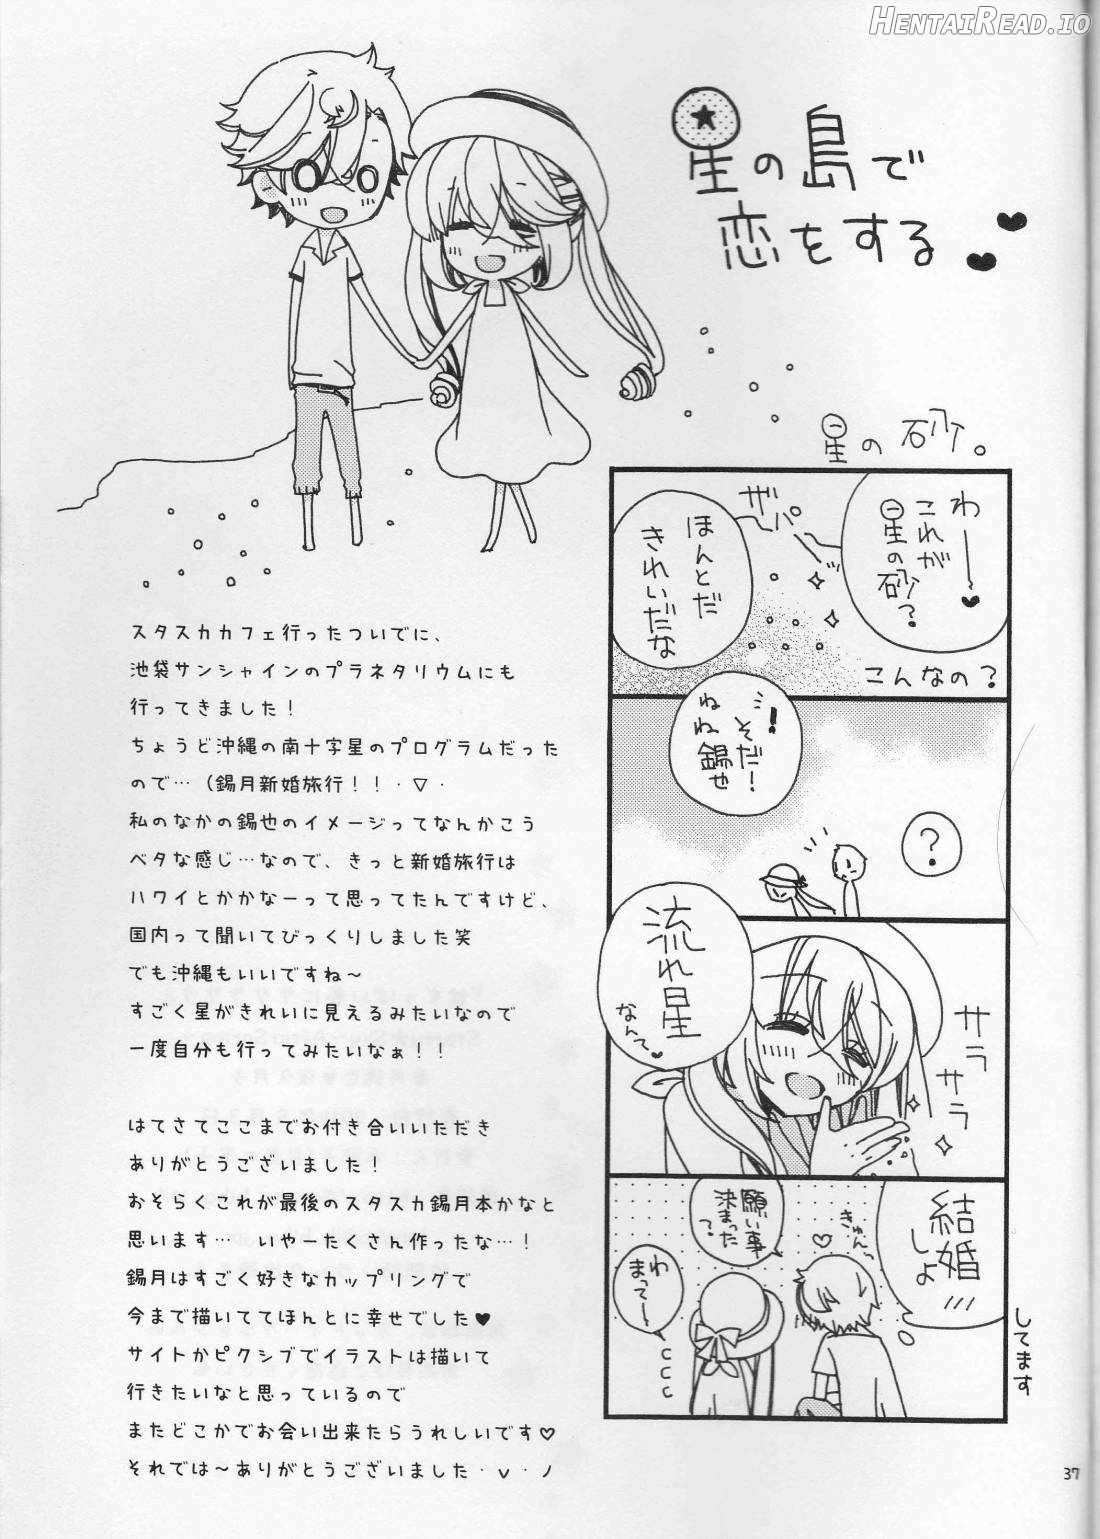 HENTAIREAD.IO
星の島で
恋をする
星の砂。
わー
これが
星の砂?
ザパーッ
ほんとだ
きれいだな
こんなの?
そだ!
ねね 錫也
?
流れ星
なんて
サラ
サラ
結婚
しよ
きゅん
願い事
決まった
?
わ
まってー
CCC
してます
スタスカカフェ行ったついでに、
池袋サンシャインのプラネタリウムにも
行ってきました!
ちょうど沖縄の南十字星のプログラムだった
ので…(錫月新婚旅行!!・▽・
私のなかの錫也のイメージってなんかこう
ベタな感じ…なので、きっと新婚旅行は
ハワイとかかなーって思ってたんですけど、
国内って聞いてびっくりしました笑
でも沖縄もいいですね〜
すごく星がきれいに見えるみたいなので
一度自分も行ってみたいなぁ!!
はてさてここまでお付き合いいただき
ありがとうございました!
おそらくこれが最後のスタスカ錫月本かなと
思います… いやーたくさん作ったな…!
錫月はすごく好きなカップリングで
今まで描いててほんとに幸せでした♥
サイトかピクシブでイラストは描いて
行きたいなと思っているので
またどこかでお会い出来たらうれしいです♡
それでは〜ありがとうございました・v・ノ
37